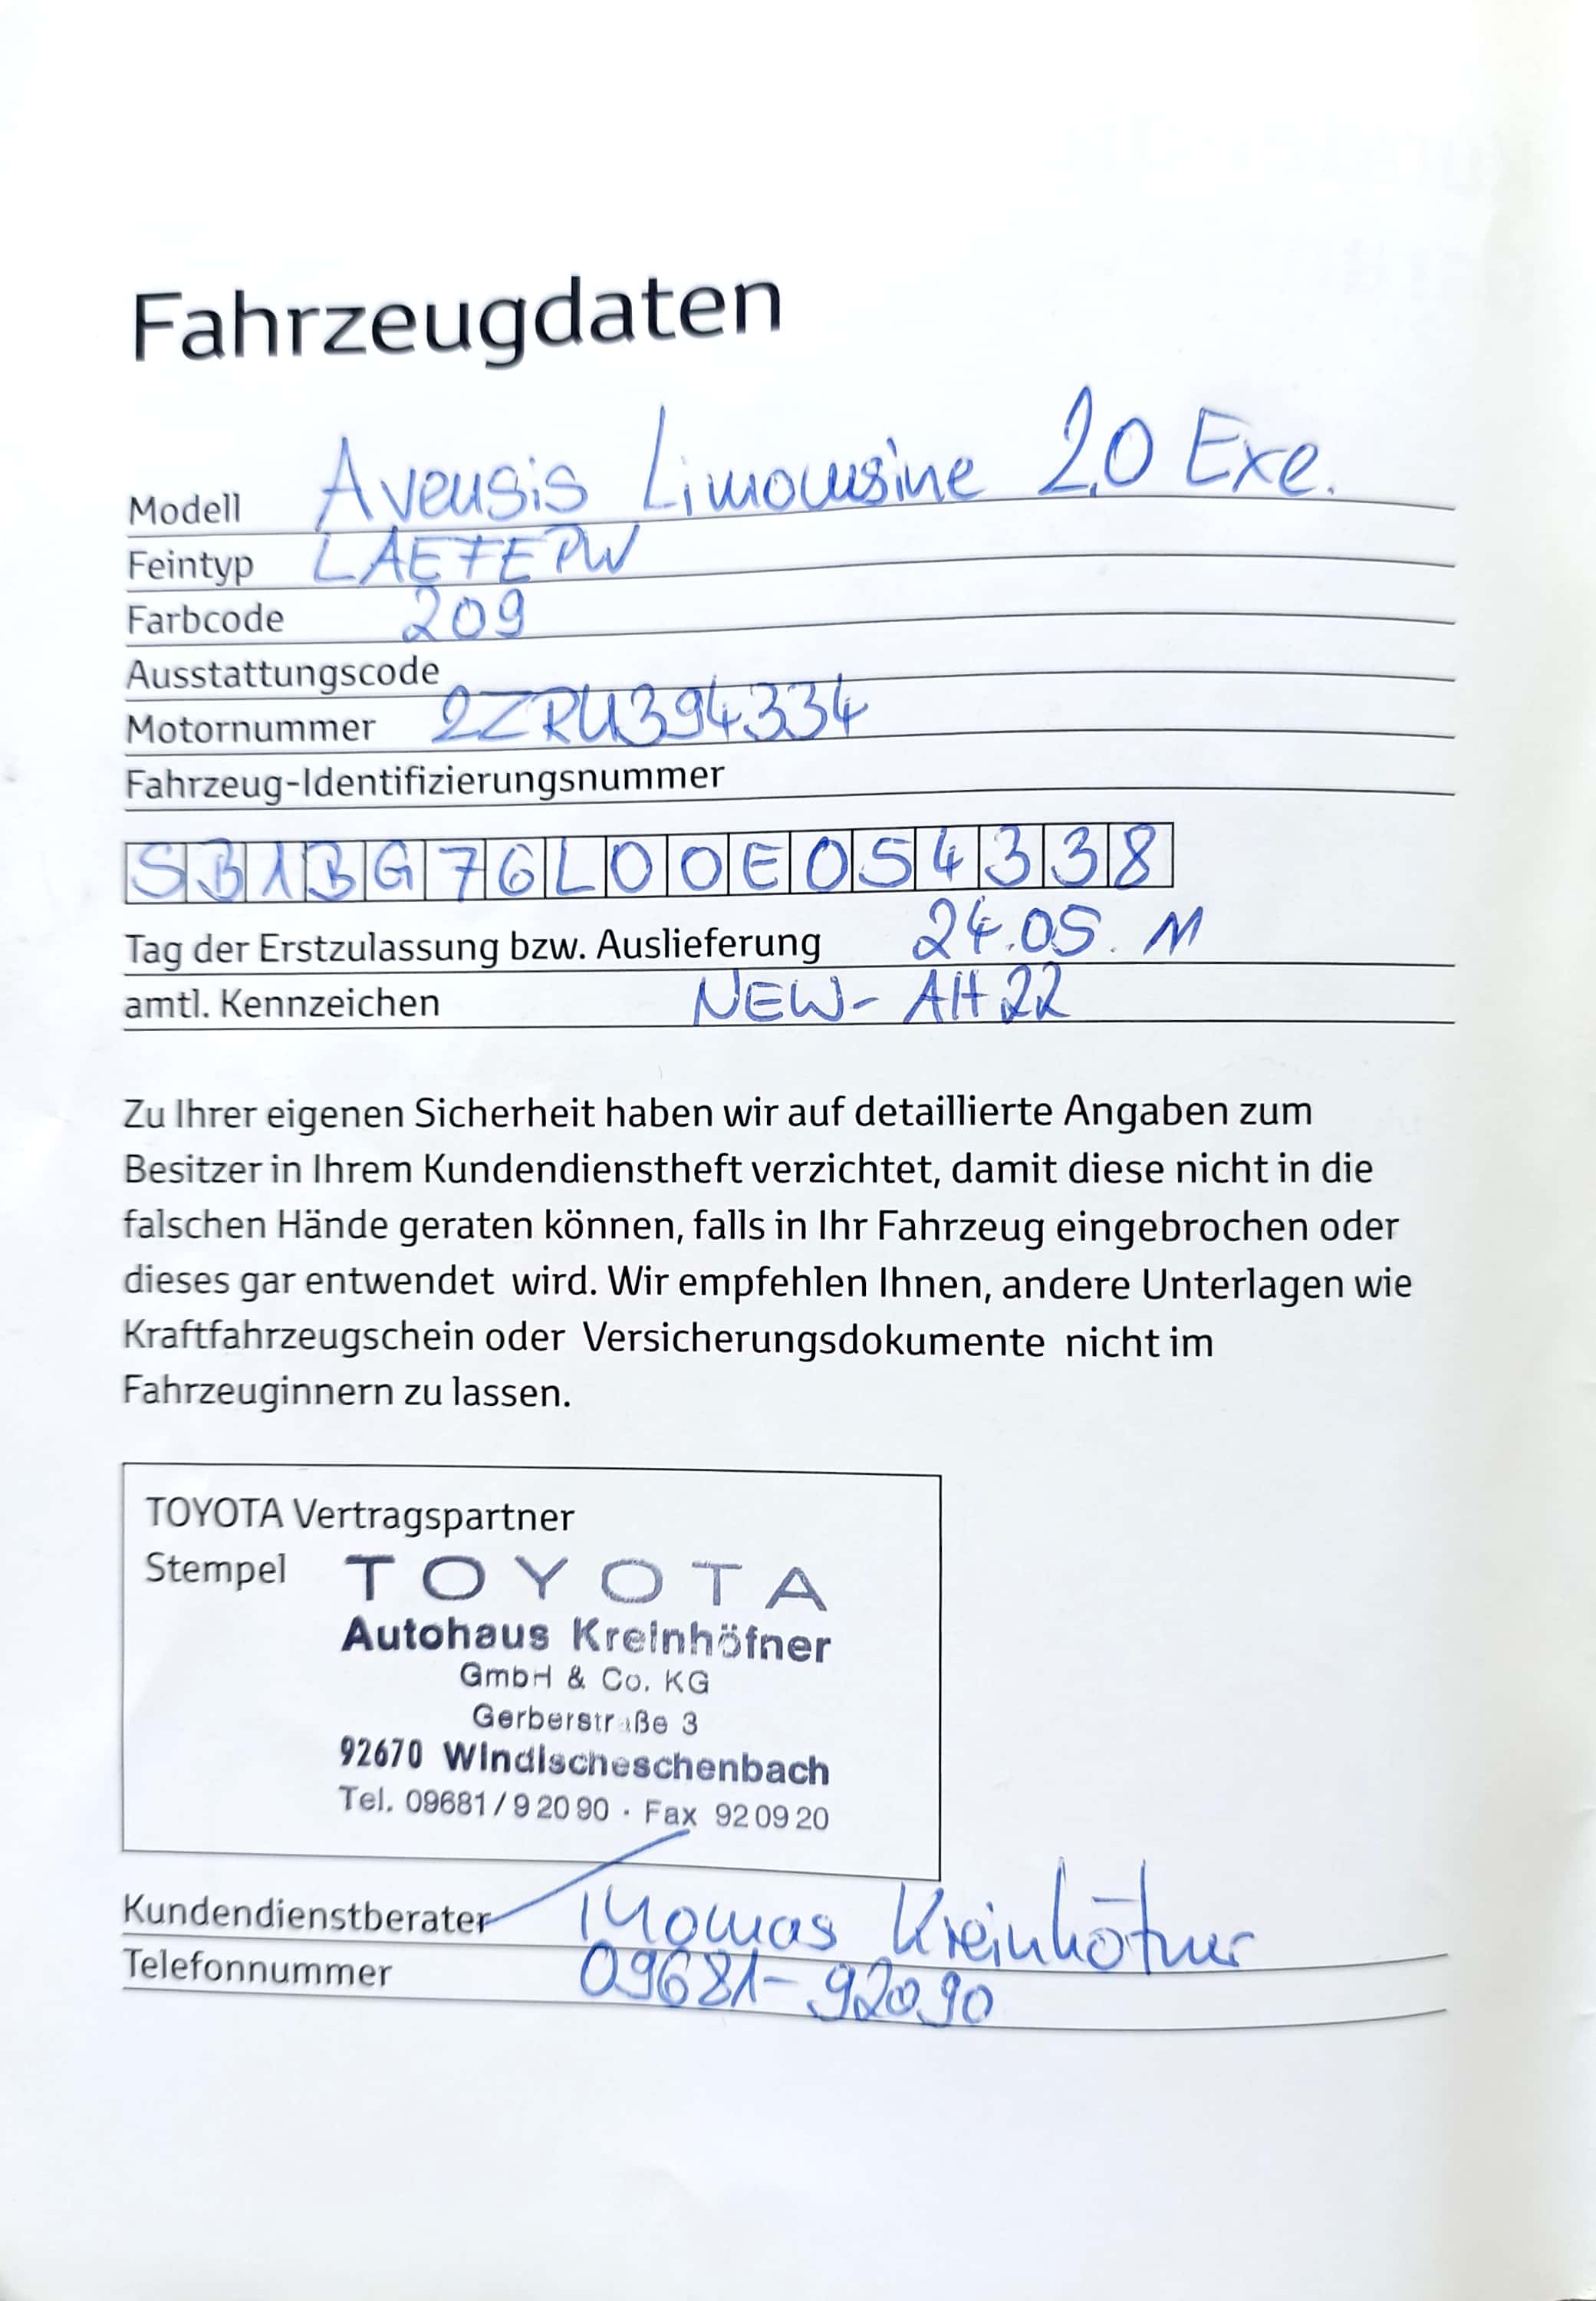 Fahrzeugdaten
Modell Avensis Limousine 2,0 Exe.
Feintyp LAEFEPW
Farbcode 209
Ausstattungscode
Motornummer 2ZRU394334
Fahrzeug-Identifizierungsnummer
SB1BG76L00E054338
Tag der Erstzulassung bzw. Auslieferung 24.05. 11
amtl. Kennzeichen NEW- AH 22
Zu Ihrer eigenen Sicherheit haben wir auf detaillierte Angaben zum
Besitzer in Ihrem Kundendienstheft verzichtet, damit diese nicht in die
falschen Hände geraten können, falls in Ihr Fahrzeug eingebrochen oder
dieses gar entwendet wird. Wir empfehlen Ihnen, andere Unterlagen wie
Kraftfahrzeugschein oder Versicherungsdokumente nicht im
Fahrzeuginnern zu lassen.
TOYOTA Vertragspartner
Stempel TOYOTA
Autohaus Kreinhöfner
GmbH & Co. KG
Gerberstraße 3
92670 Windischeschenbach
Tel. 09681/92090 · Fax 920920
Kundendienstberater Thomas Kreinhöfner
Telefonnummer 09681-92090